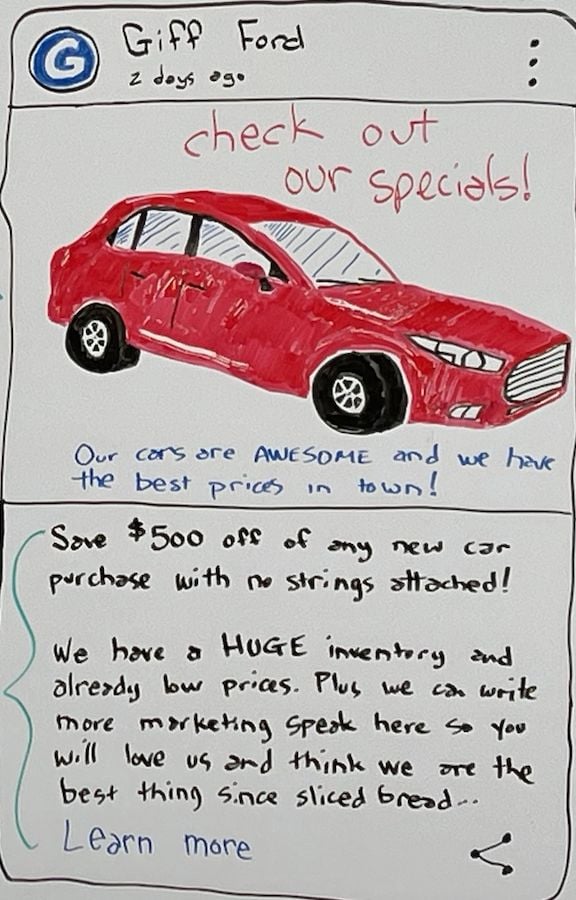 G
Giff Ford
2 days ago
check out
our specials!
Our cars are AWESOME and we have
the best prices in town!
Save $500 off of any new car
purchase with no strings attached!
We have a HUGE inventory and
already low prices. Plus we can write
more marketing speak here so you
will love us and think we are the
best thing since sliced bread...
Learn more